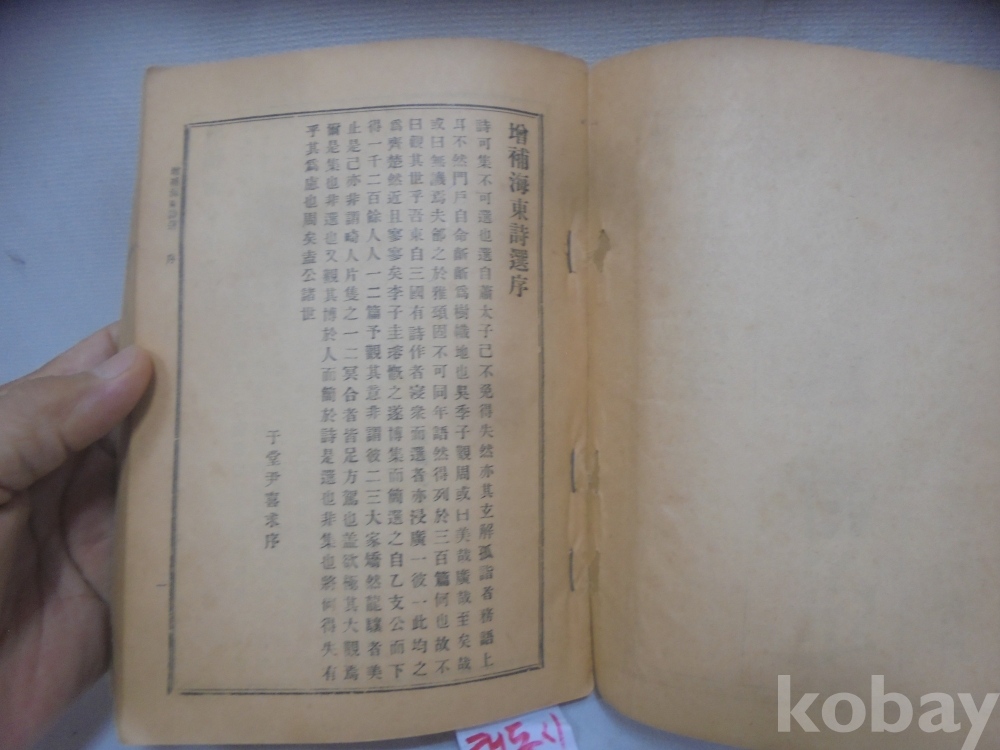 增補海東詩選序
詩可集不可選也選自蕭太子已不免得失然亦其玄解孤詣者務語上
耳不然門戶自命斷斷爲樹幟地也吳季子觀周或曰美哉廣哉至矣哉
或曰無譏焉夫鄶之於雅頌固不可同年語然得列於三百篇何也故不
曰觀其世乎吾東自三國有詩作者寖衆而選者亦浸廣一彼一此均之
爲齊楚然近且寥寥矣李子圭瑢慨之遂博集而簡選之自乙支公而下
得一千二百餘人人一二篇予觀其意非謂彼二三大家矯然龍驤者美
止是已亦非謂畸人片隻之一二冥合者皆足方駕也盖欲極其大觀焉
爾是集也非選也又觀其博於人而簡於詩是選也非集也將何得失有
乎其爲慮也周矣盍公諸世
于堂尹喜求序
序
一
해동시
kobay